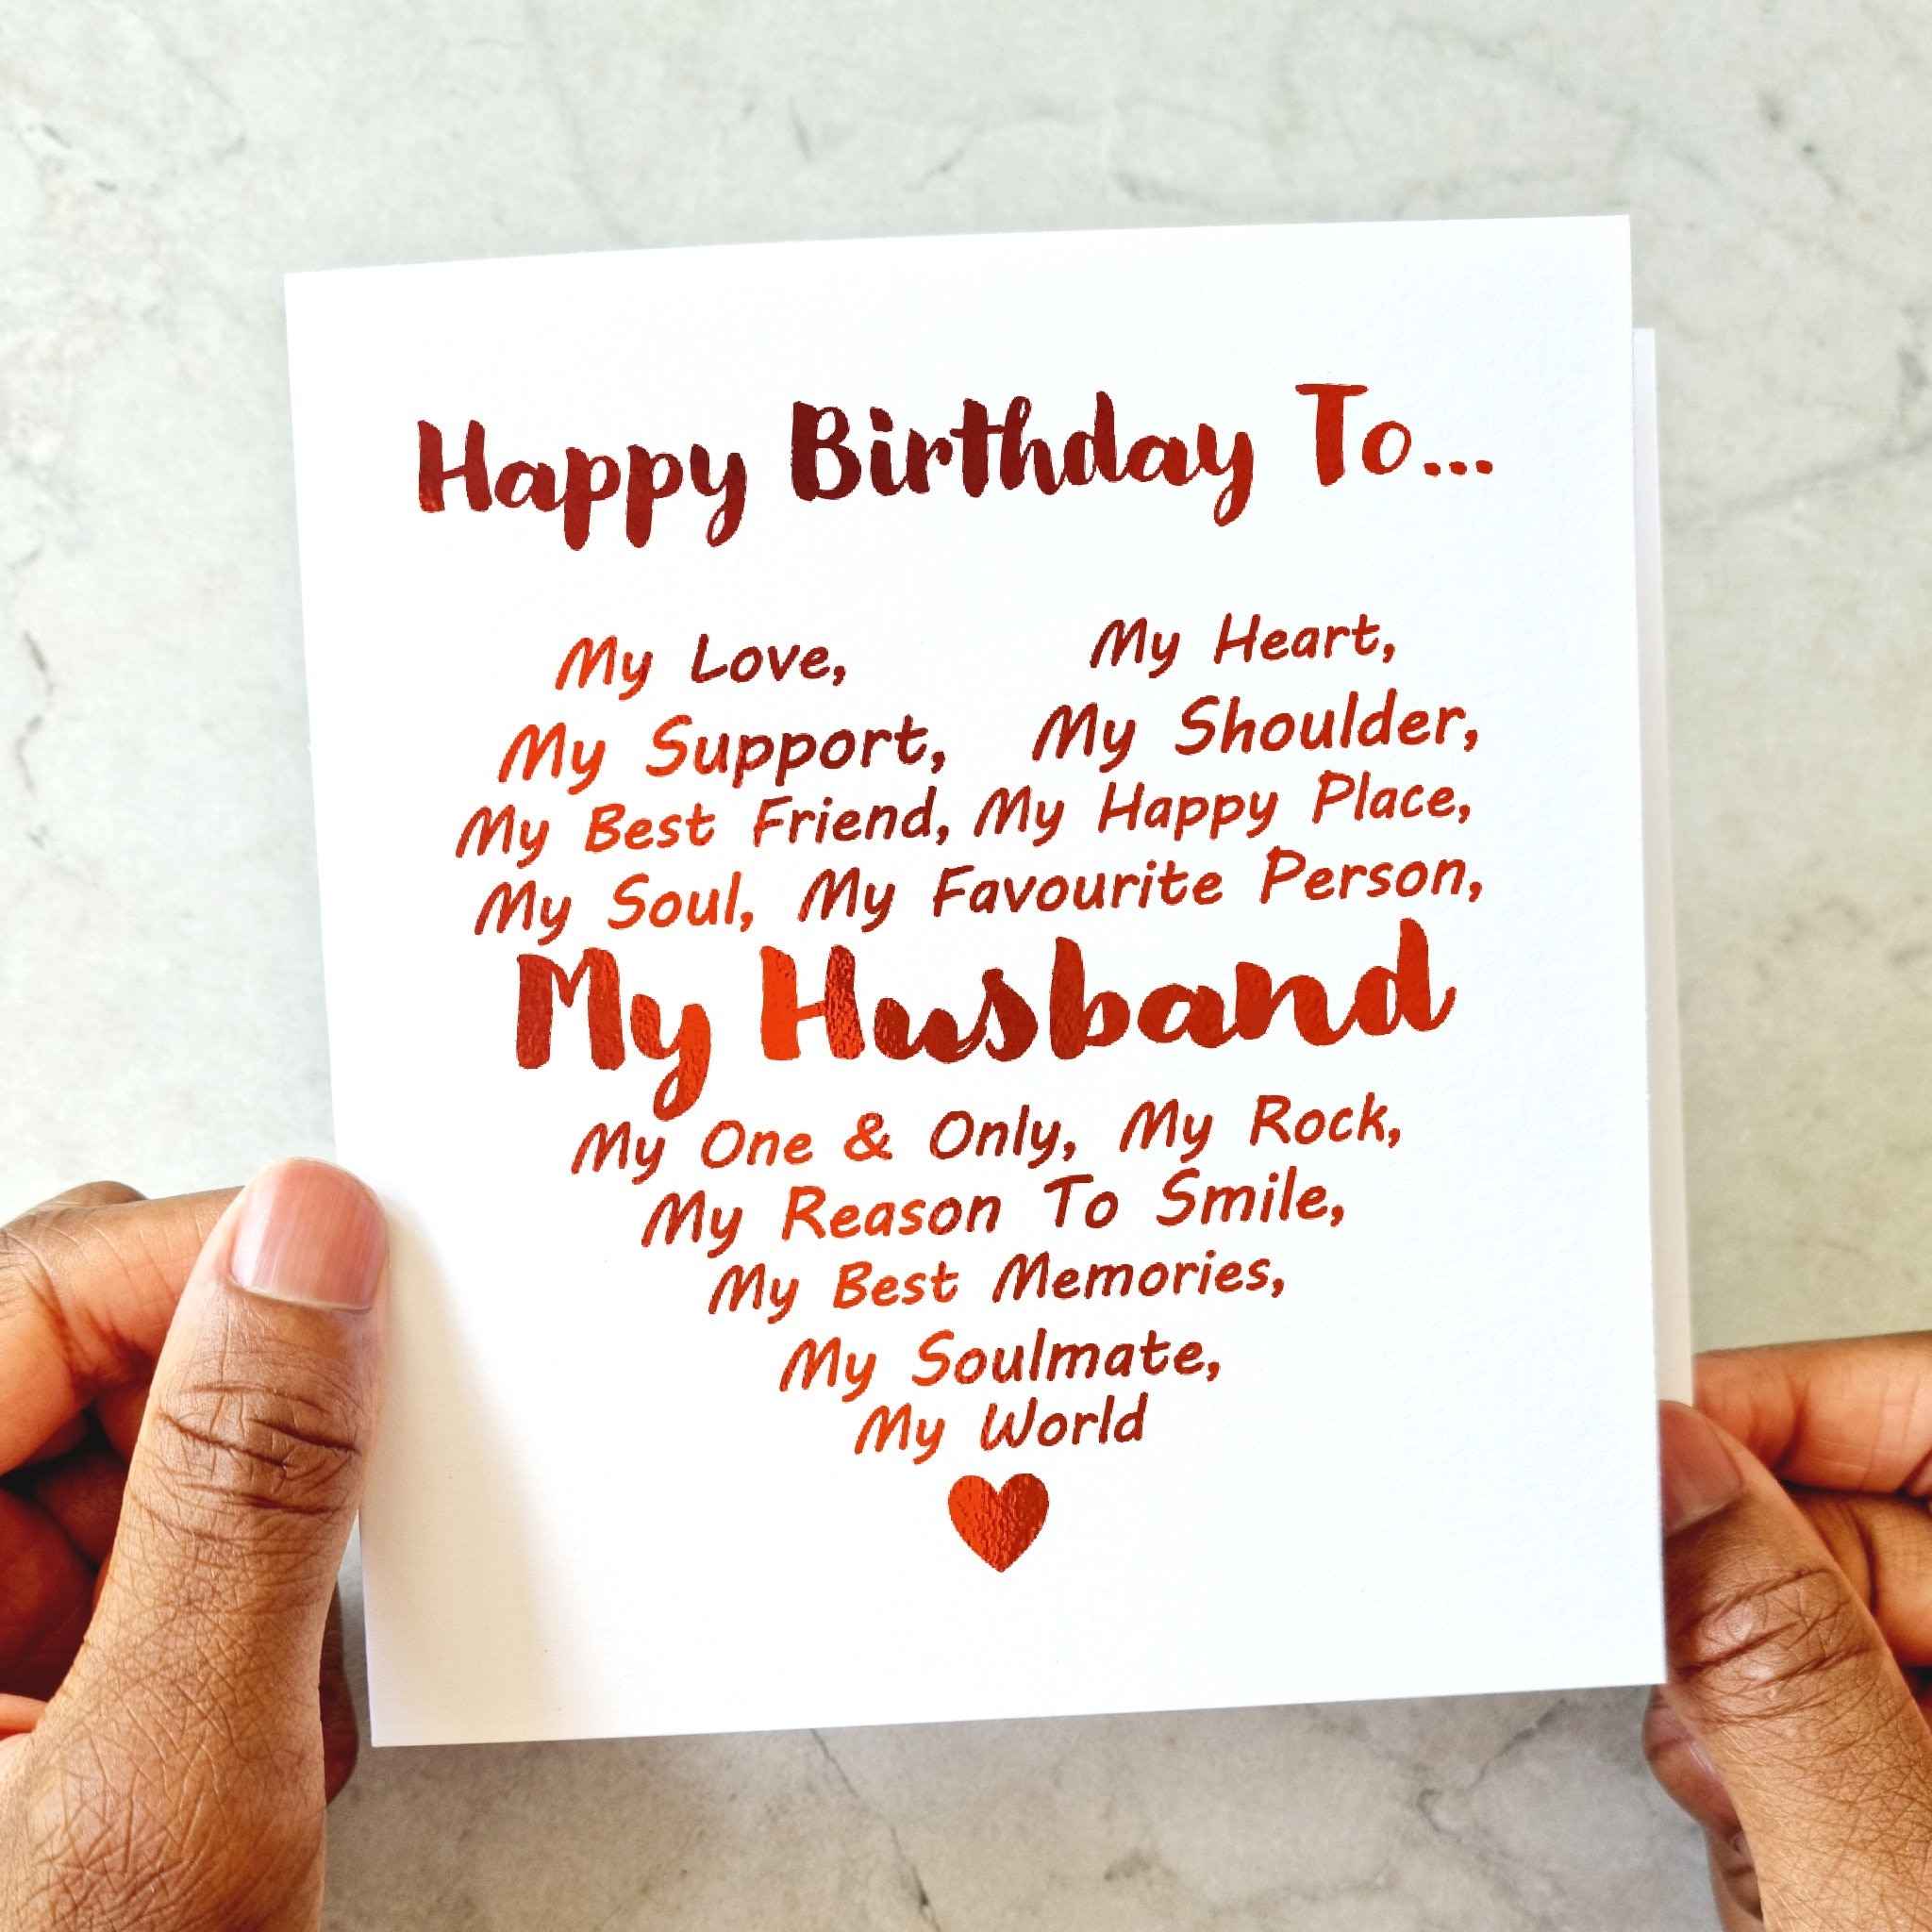 Happy Birthday To...
My Love, My Heart,
My Support, My Shoulder,
My Best Friend, My Happy Place,
My Soul, My Favourite Person,
My Husband
My One & Only, My Rock,
My Reason To Smile,
My Best Memories,
My Soulmate,
My World